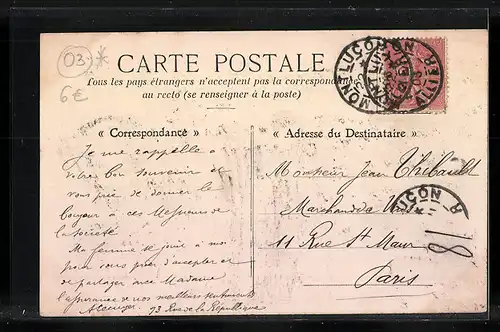 03 *
6€
CARTE POSTALE
Tous les pays étrangers n'acceptent pas la correspondance
au recto (se renseigner à la poste)
MONTLUÇON
ALLIER
« Correspondance »
Je me rappelle à
votre bon souvenir et
vous prie de donner le
bonjour à ces Messieurs de
la société
Ma femme se joint à moi
pour vous prier d'accepter et
de partager avec Madame
l'assurance de nos meilleurs sentiments
93 Rue de la République
« Adresse du Destinataire »
Monsieur Jean Thibault
Marchand de Vins
11 Rue St Maur
Paris
18